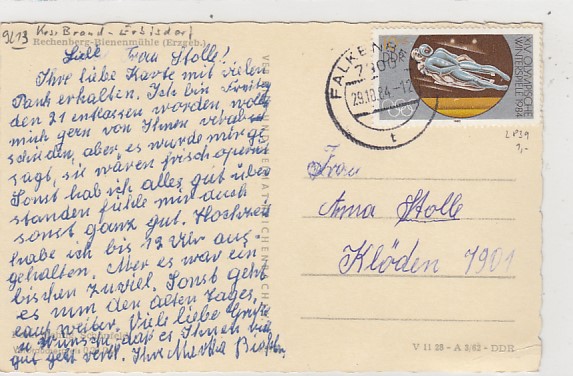 9213 Krs. Brand-Erbisdorf
Rechenberg-Bienenmühle (Erzgeb.)
Liebe Frau Stolle!
Ihre liebe Karte mit vielen
Dank erhalten. Ich bin
den 21 entlassen worden, wollte
mich gern von Ihnen verab
schieden, aber es wurde mir ge
sagt, sie wären frisch operiert
Sonst hab ich alles gut über
standen fühle mich auch
sonst ganz gut. Hochzeit
habe ich bis 12 Uhr aus
gehalten. Aber es war ein
bischen zuviel. Sonst geht
es nun den alten Tages,
lauf weiter. Viele liebe Grüße
u. Wünsche, daß es Ihnen bald
gut geht verbl. Ihre
FALKENB
7900
29.10.84-12
t
DDR
XIV. OLYMPISCHE
WINTERSPIELE 1984
LP39
1,-
Frau
Anna Stolle
Klöden 7901
V 11 28 - A 5/62 - DDR